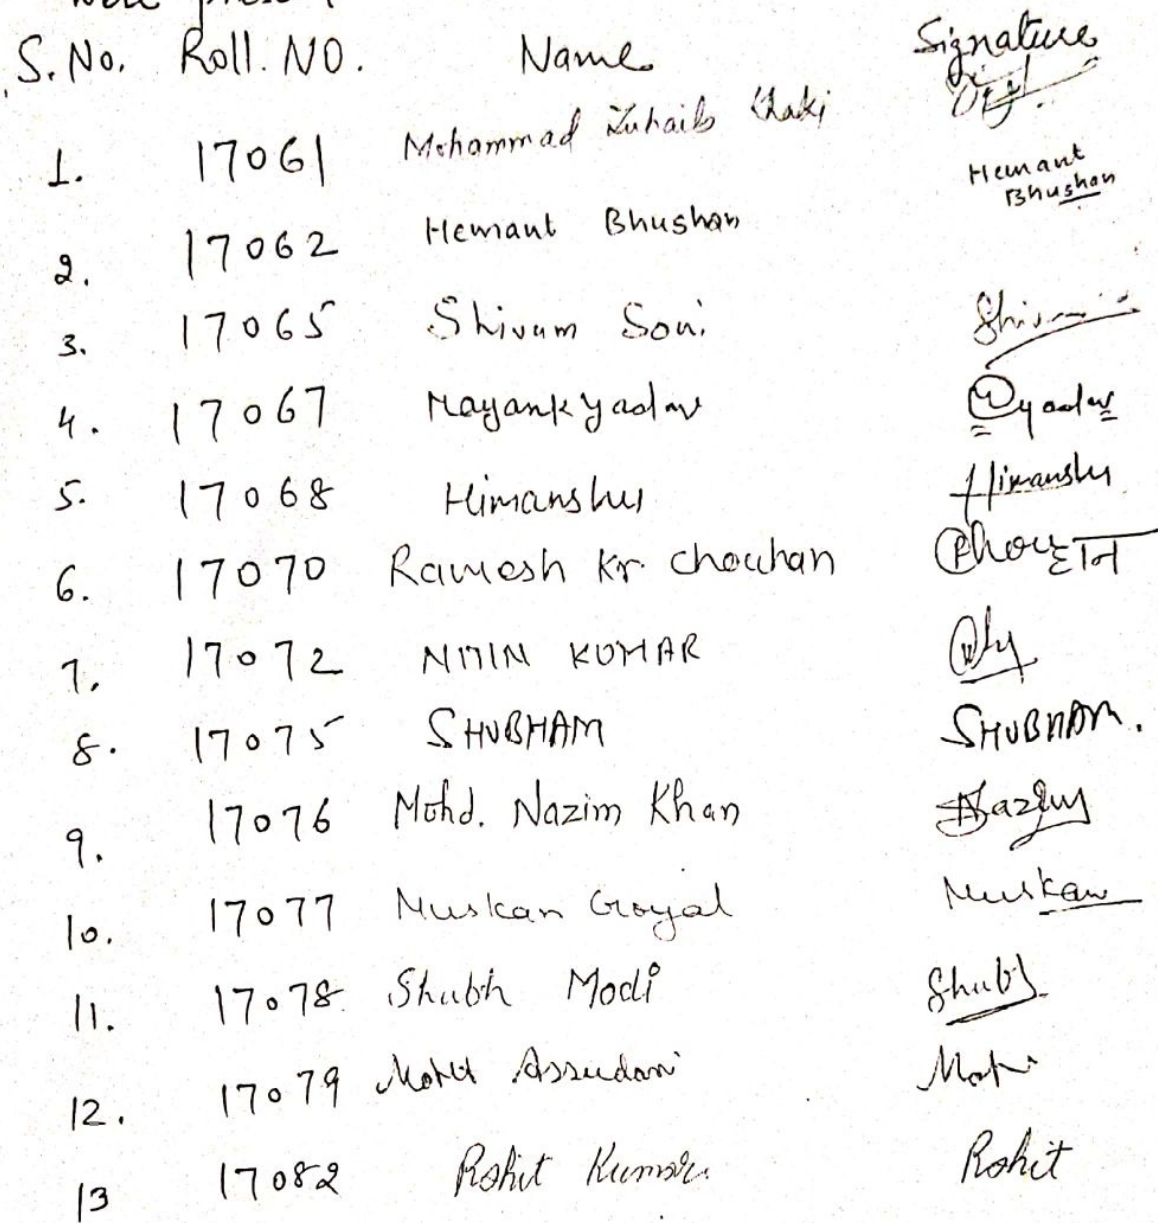 S.No. Roll. NO. Name Signature
1. 17061 Mohammad Zuhaib Khaki
2. 17062 Hemant Bhushan Hemant Bhushan
3. 17065 Shivam Soni
4. 17067 Mayank yadav yadav
5. 17068 Himanshu Himanshu
6. 17070 Ramesh Kr. Chouhan
7. 17072 NITIN KUMAR
8. 17075 SHUBHAM SHUBHAM.
9. 17076 Mohd. Nazim Khan
10. 17077 Muskan Goyal Muskan
11. 17078 Shubh Modi Shubh
12. 17079 Mohit Assudani
13 17082 Rohit Kumar Rohit